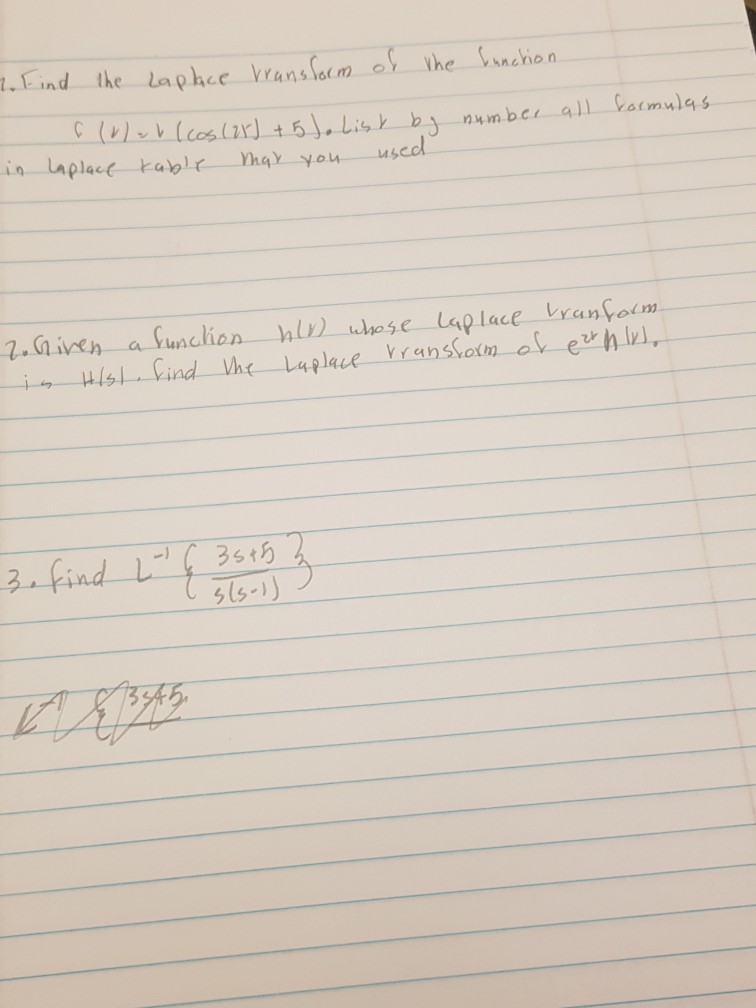 1. Find the Laplace transform of the function
f(t) = t(cos(2t) + 5). List by number all formulas
in Laplace table that you used
2. Given a function h(t) whose Laplace tranform
is H(s). Find the Laplace transform of e^{2t} h(t).
3. Find L^{-1} { \frac{3s+5}{s(s-1)} }